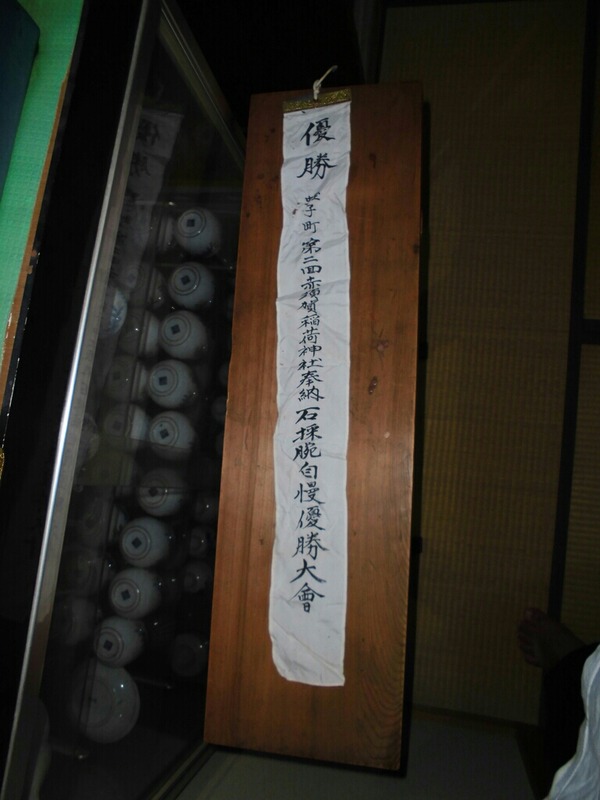 優勝
子町 第二回赤須賀稲荷神社奉納 石採腕自慢優勝大會